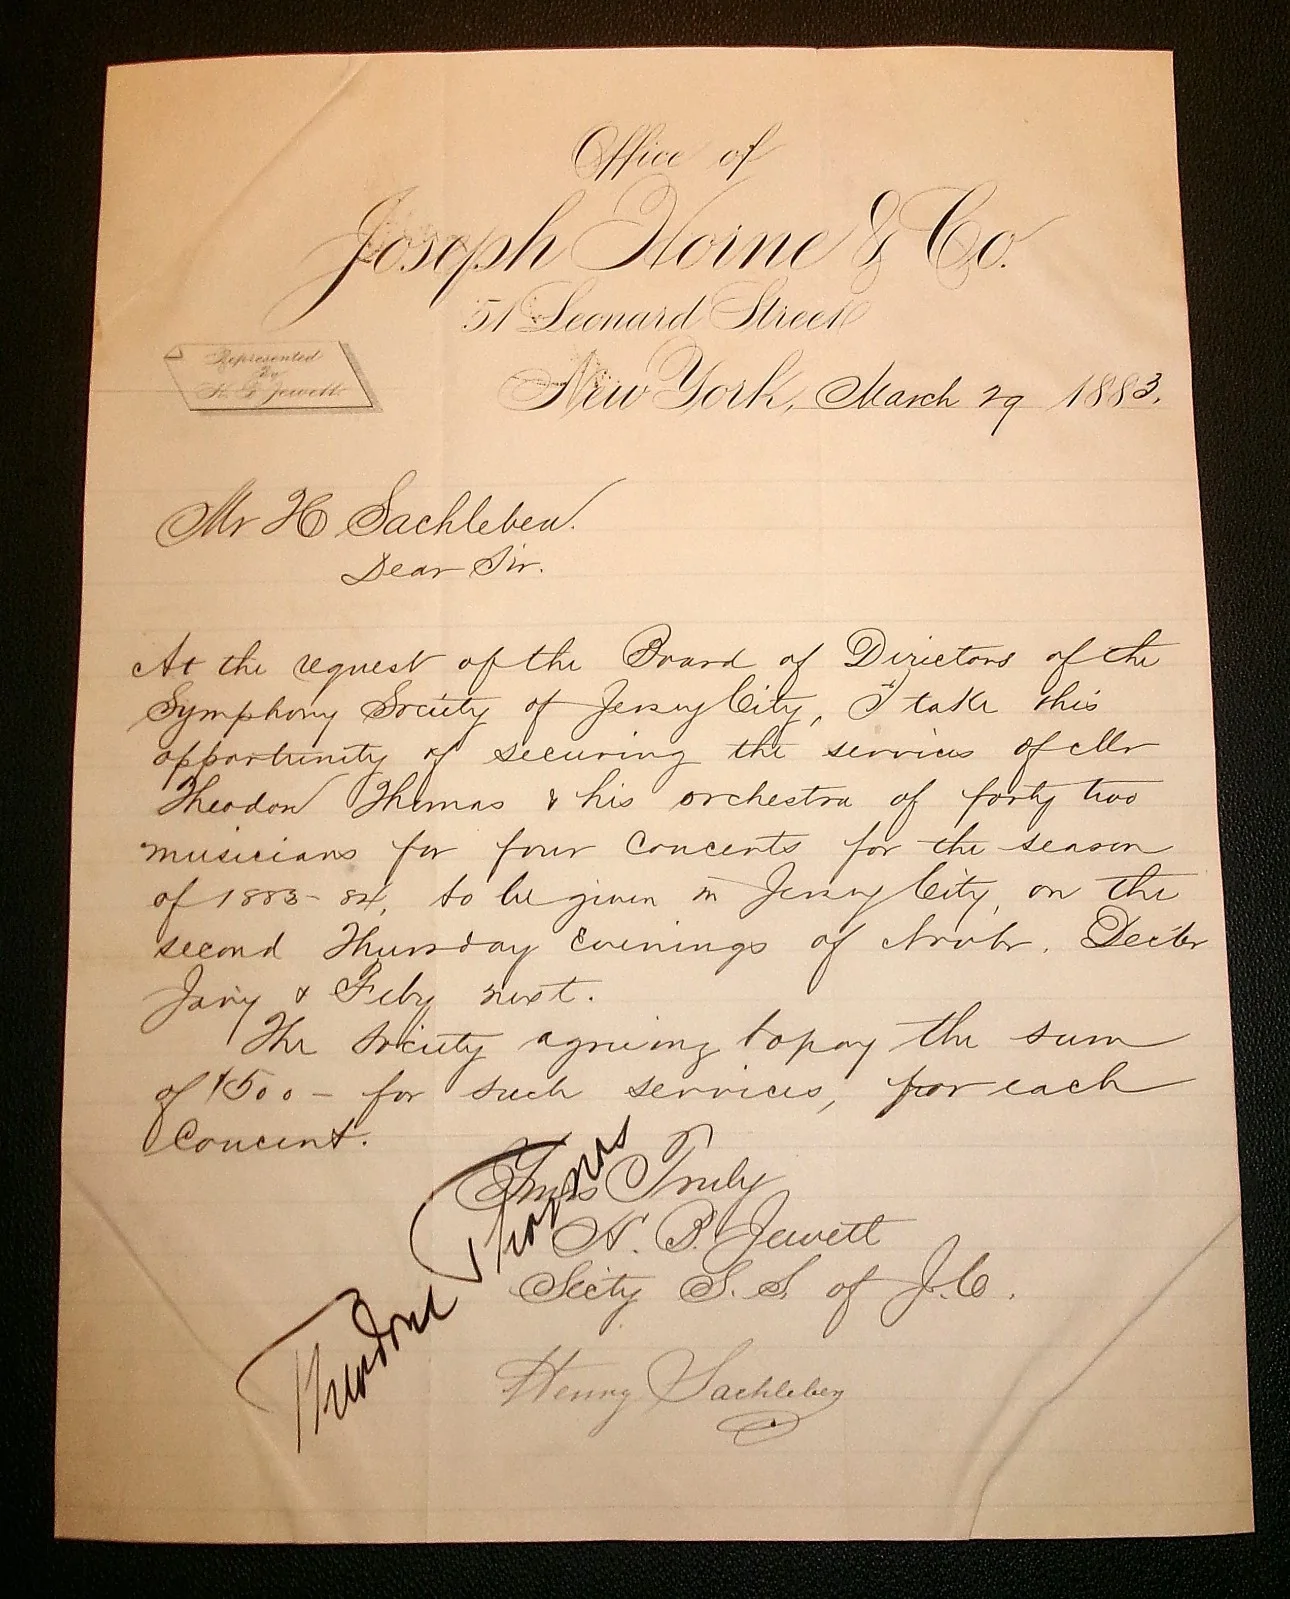 Office of
Joseph Horne & Co.
51 Leonard Street
Represented
By
H. B. Jewett
New York, March 29 1883.
Mr H Sachleben.
Dear Sir.
At the request of the Board of Directors of the
Symphony Society of Jersey City, I take this
opportunity of securing the services of Mr
Theodore Thomas & his orchestra of forty two
musicians for four Concerts for the season
of 1883-84, to be given in Jersey City, on the
second Thursday Evenings of Novbr. Decbr
Jany & Feby next.
The Society agreeing to pay the sum
of $500- for such services, for each
Concert.
Yours Truly
H. B. Jewett
Secty S. S. of J.C.
Theodore Thomas
Henry Sachleben